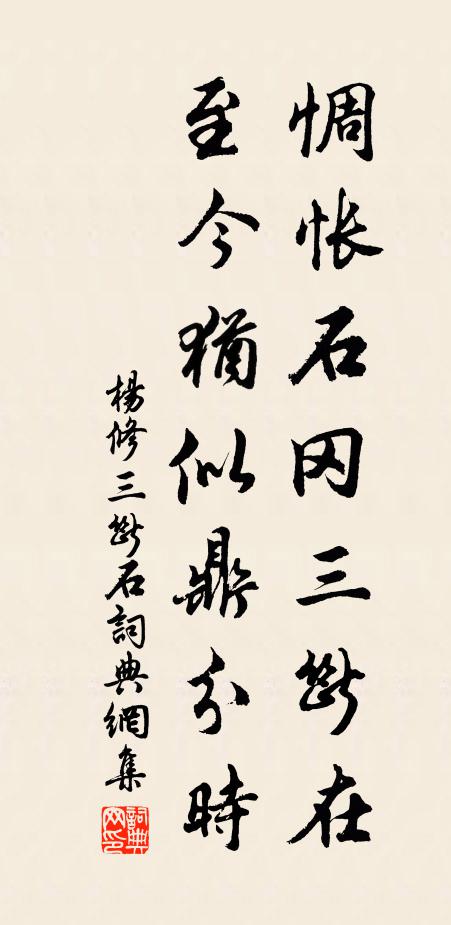 惆怅石冈三断在
至今猶似鼎分時
楊修三断石詞典網集
詞典網印